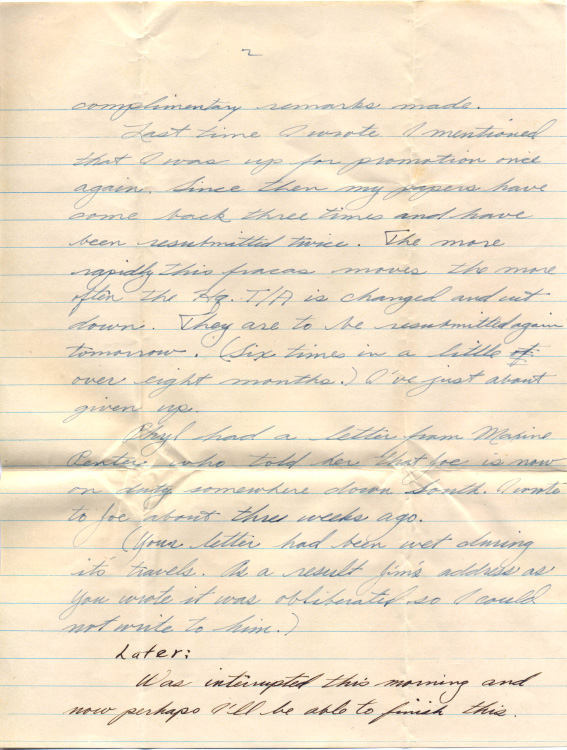 2
complimentary remarks made.
Last time I wrote I mentioned
that I was up for promotion once
again. Since then my papers have
come back three times and have
been resubmitted twice. The more
rapidly this fracas moves the more
often the Hq. T/A is changed and cut
down. They are to be resubmitted again
tomorrow. (Six times in a little of
over eight months.) I've just about
given up.
had a letter from Maxine
who told her that Joe is now
on duty somewhere down South. I wrote
to Joe about three weeks ago.
(Your letter had been wet during
it's travels. As a result Jim's address as
you wrote it was obliterated so I could
not write to him.)
Later:
Was interrupted this morning and
now perhaps I'll be able to finish this.